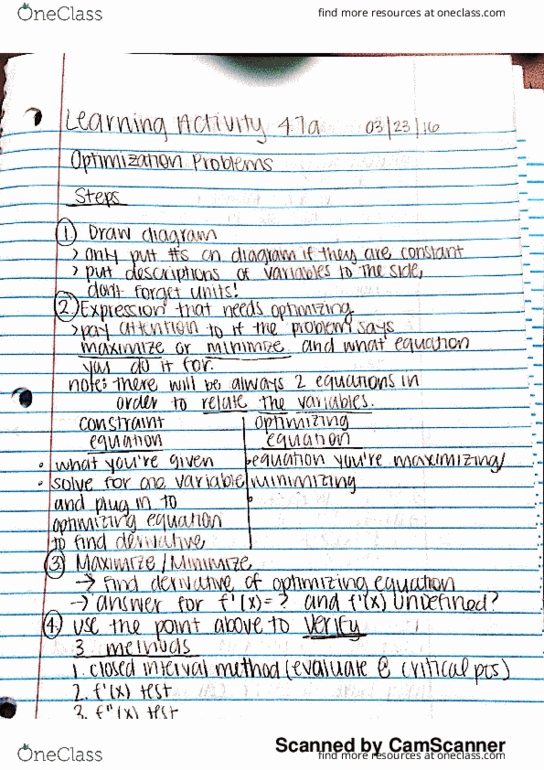 OneClass
find more resources at oneclass.com
Learning Activity 4.7a 03/23/16
Optimization Problems
Steps
① Draw diagram
> only put #s on diagram if they are constant
> put descriptions of variables to the side,
don't forget units!
② Expression that needs optimizing
> pay attention to if the problem says
maximize or minimize and what equation
you do it for.
note: there will be always 2 equations in
order to relate the variables.
constraint optimizing
equation equation
• what you're given • equation you're maximizing/
• solve for one variable minimizing
and plug in to
optimizing equation
to find derivative
③ Maximize/Minimize
→ find derivative of optimizing equation
→ answer for f'(x)=? and f'(x) undefined?
④ use the point above to verify
3 methods
1. closed interval method (evaluate @ critical pts)
2. f'(x) test
3. f''(x) test
Scanned by CamScanner
OneClass
find more resources at oneclass.com